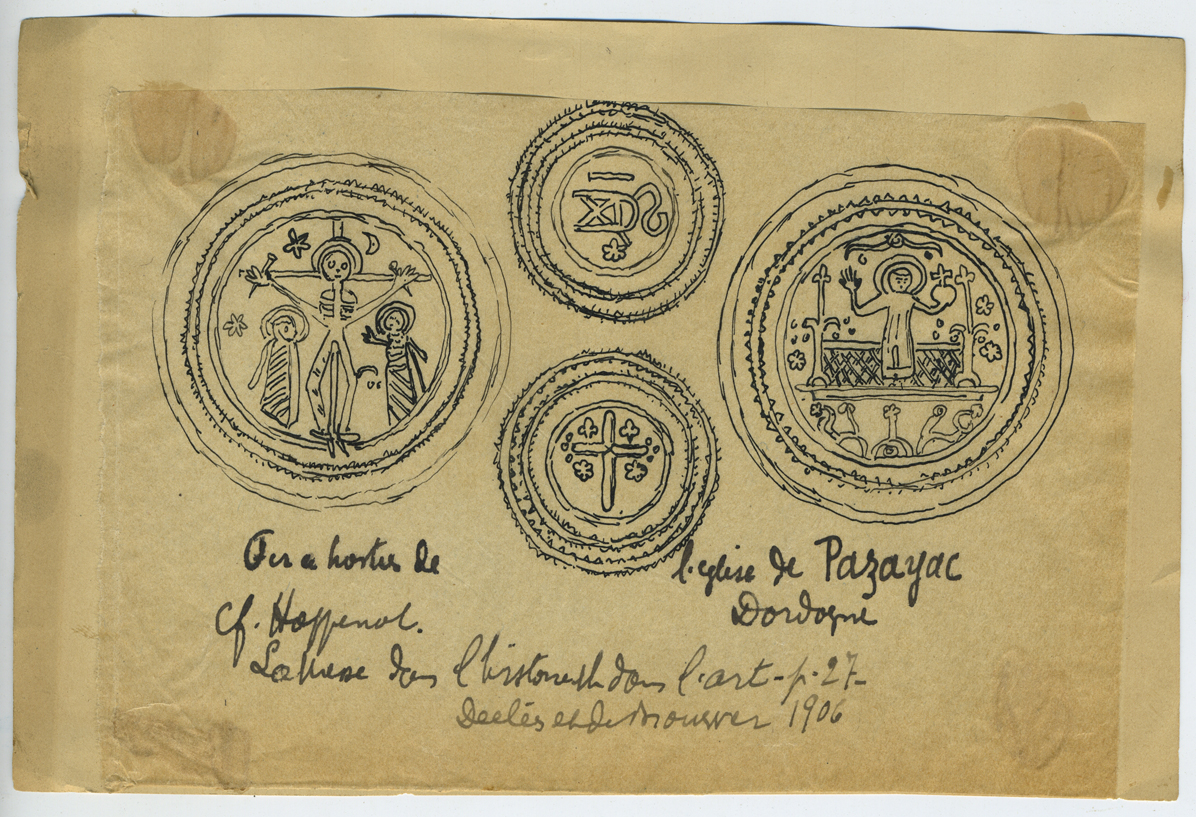 Fer a hosties de l'eglise de Pazayac
Dordogne
cf. Hoppenot.
La Messe dans l'histoire et dans l'art - p. 27 -
Desclée et de Brouwer 1906